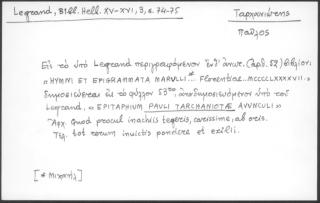 Legrand, Bibl. Hell. XV-XVI, 3, σ. 74-75
Ταρχανιώτης
Παῦλος
Εἰς τὸ ὑπὸ Legrand περιγραφόμενον ἐνθ' ἀνωτ. (ἀρ. 52) βιβλίον:
«HYMNI ET EPIGRAMMATA MARULLI*. Florentiae. MCCCCLXXXXVII.»
δημοσιεύεται ἐν τῷ φύλλον 53, ἀναδημοσιευόμενον ὑπὸ τοῦ
Legrand, «EPITAPHIUM PAULI TARCHANIOTAE AVUNCULI»
Ἀρχ. Quod procul inachiis tegeris, carissime, ab oris.
Τελ. tot rerum invictis pondere et exilii.
[* Μιχαήλ]